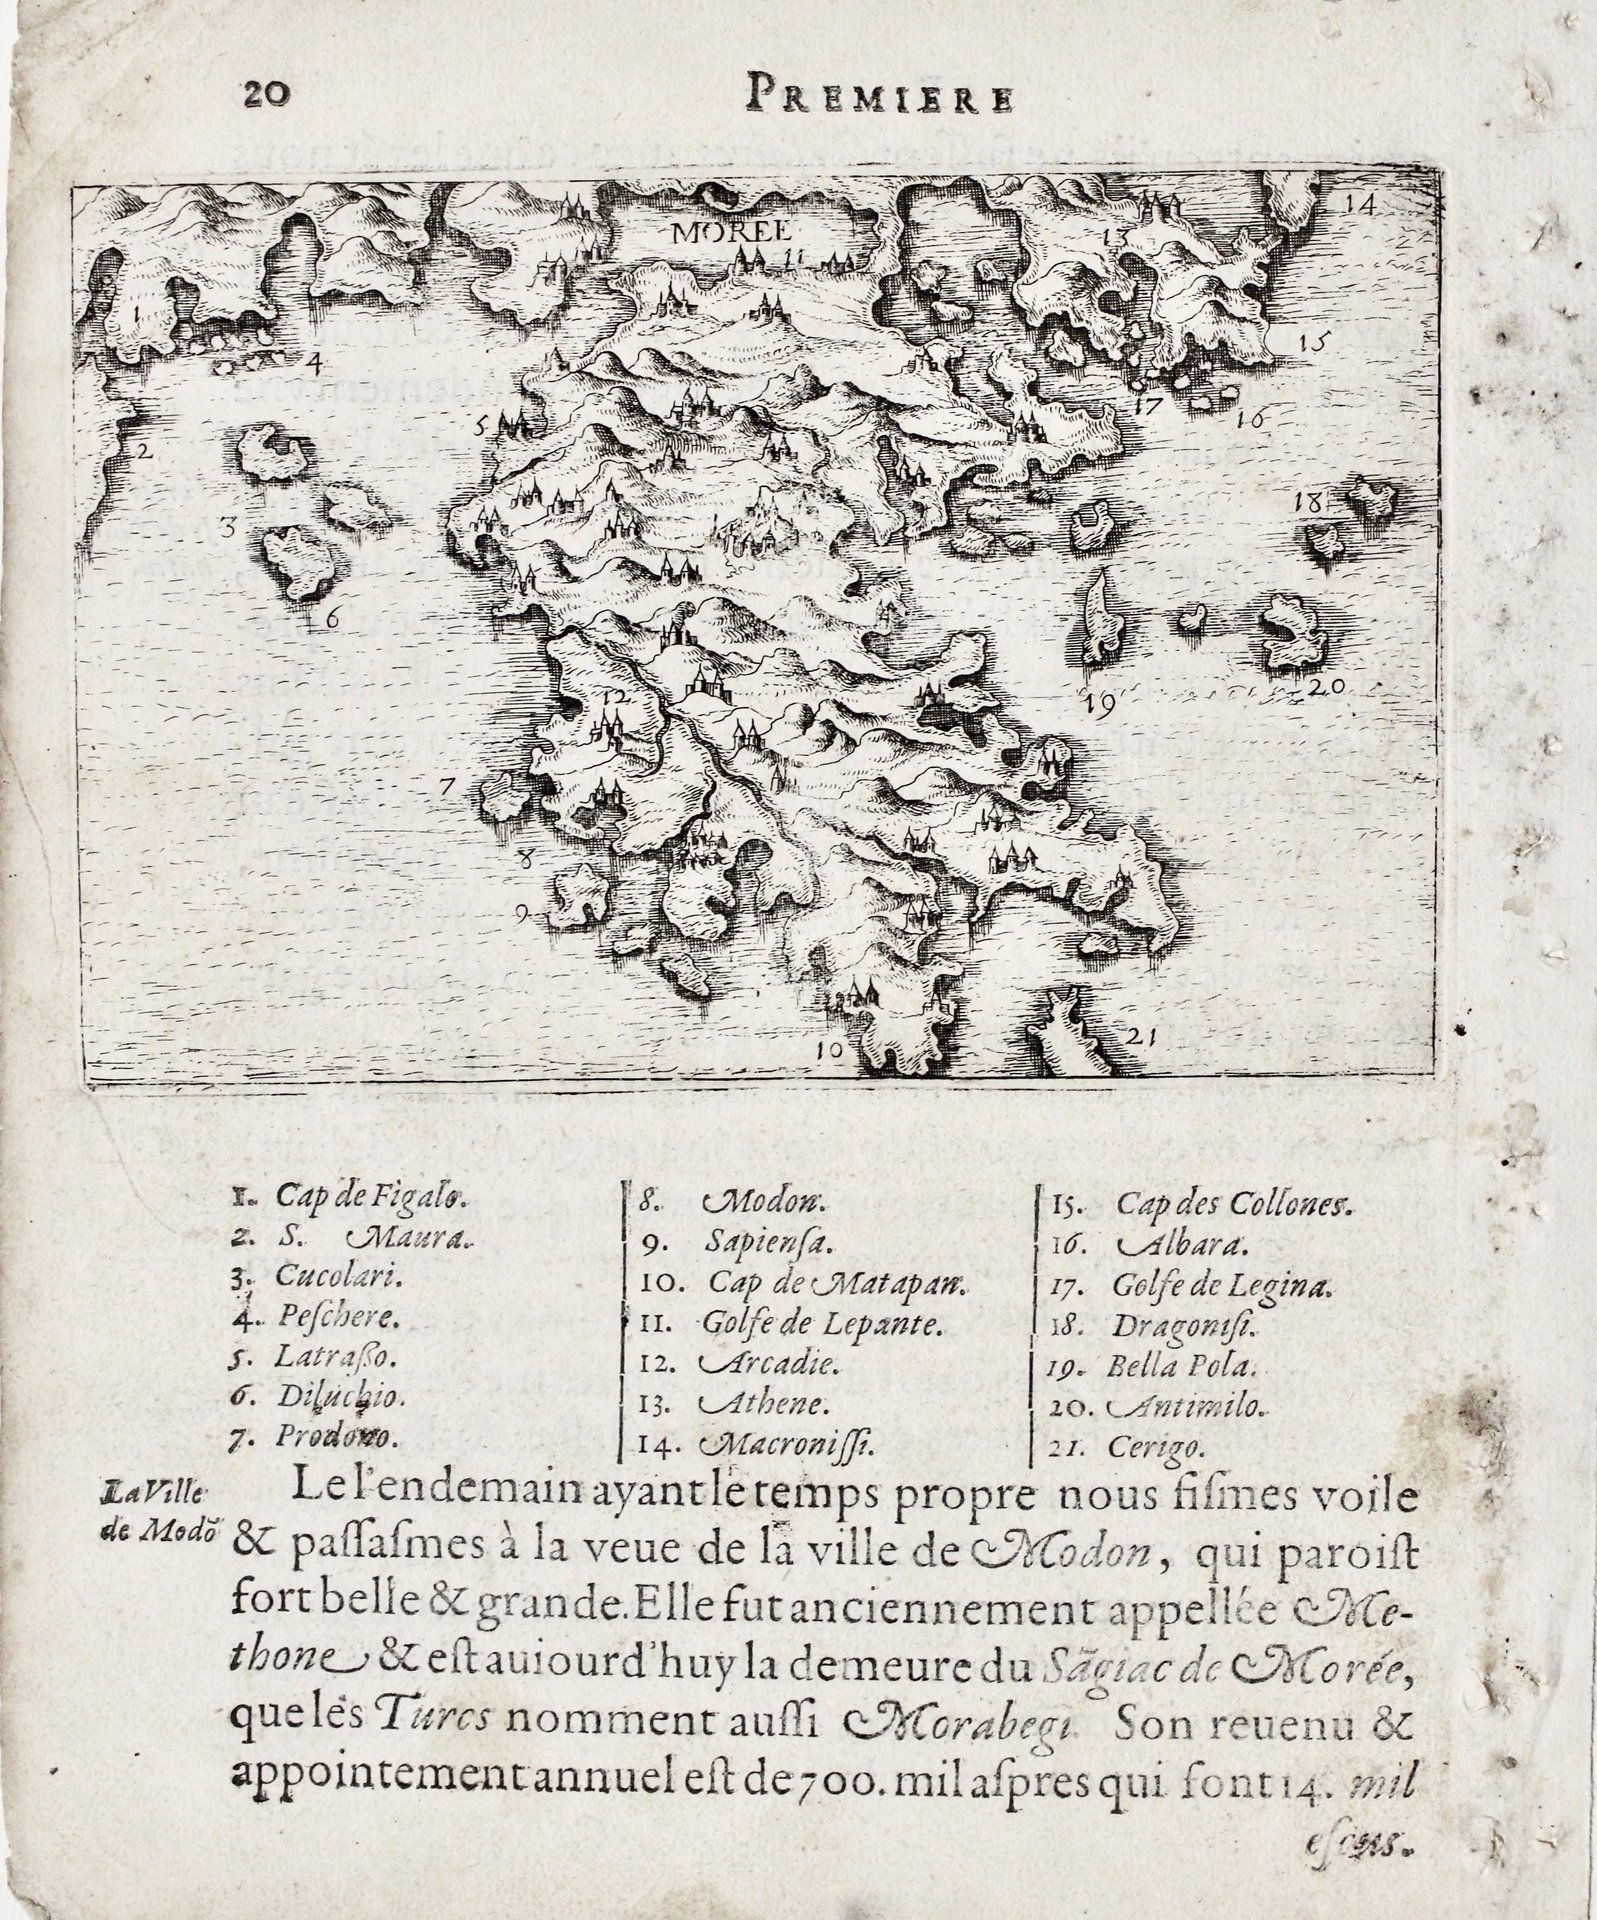 20 PREMIERE
MOREE
11
13
14
1
4
15
5
17
16
2
3
18
6
19
20
12
7
8
9
10
21
1. Cap de Figalo.
2. S. Maura.
3. Cucolari.
4. Peſchere.
5. Latraßo.
6. Diluchio.
7. Prodono.
8. Modon.
9. Sapienſa.
10. Cap de Matapan.
11. Golfe de Lepante.
12. Arcadie.
13. Athene.
14. Macroniſſi.
15. Cap des Collones.
16. Albara.
17. Golfe de Legina.
18. Dragoniſi.
19. Bella Pola.
20. Antimilo.
21. Cerigo.
La Ville
de Modõ
Le l'endemain ayant le temps propre nous fiſmes voile
& paſſaſmes à la veue de la ville de Modon, qui paroiſt
fort belle & grande. Elle fut anciennement appellée Me-
thone & eſt auiourd'huy la demeure du Sãgiac de Morée,
que les Turcs nomment auſſi Morabegi. Son reuenu &
appointement annuel eſt de 700. mil aſpres qui font 14. mil
eſcus.